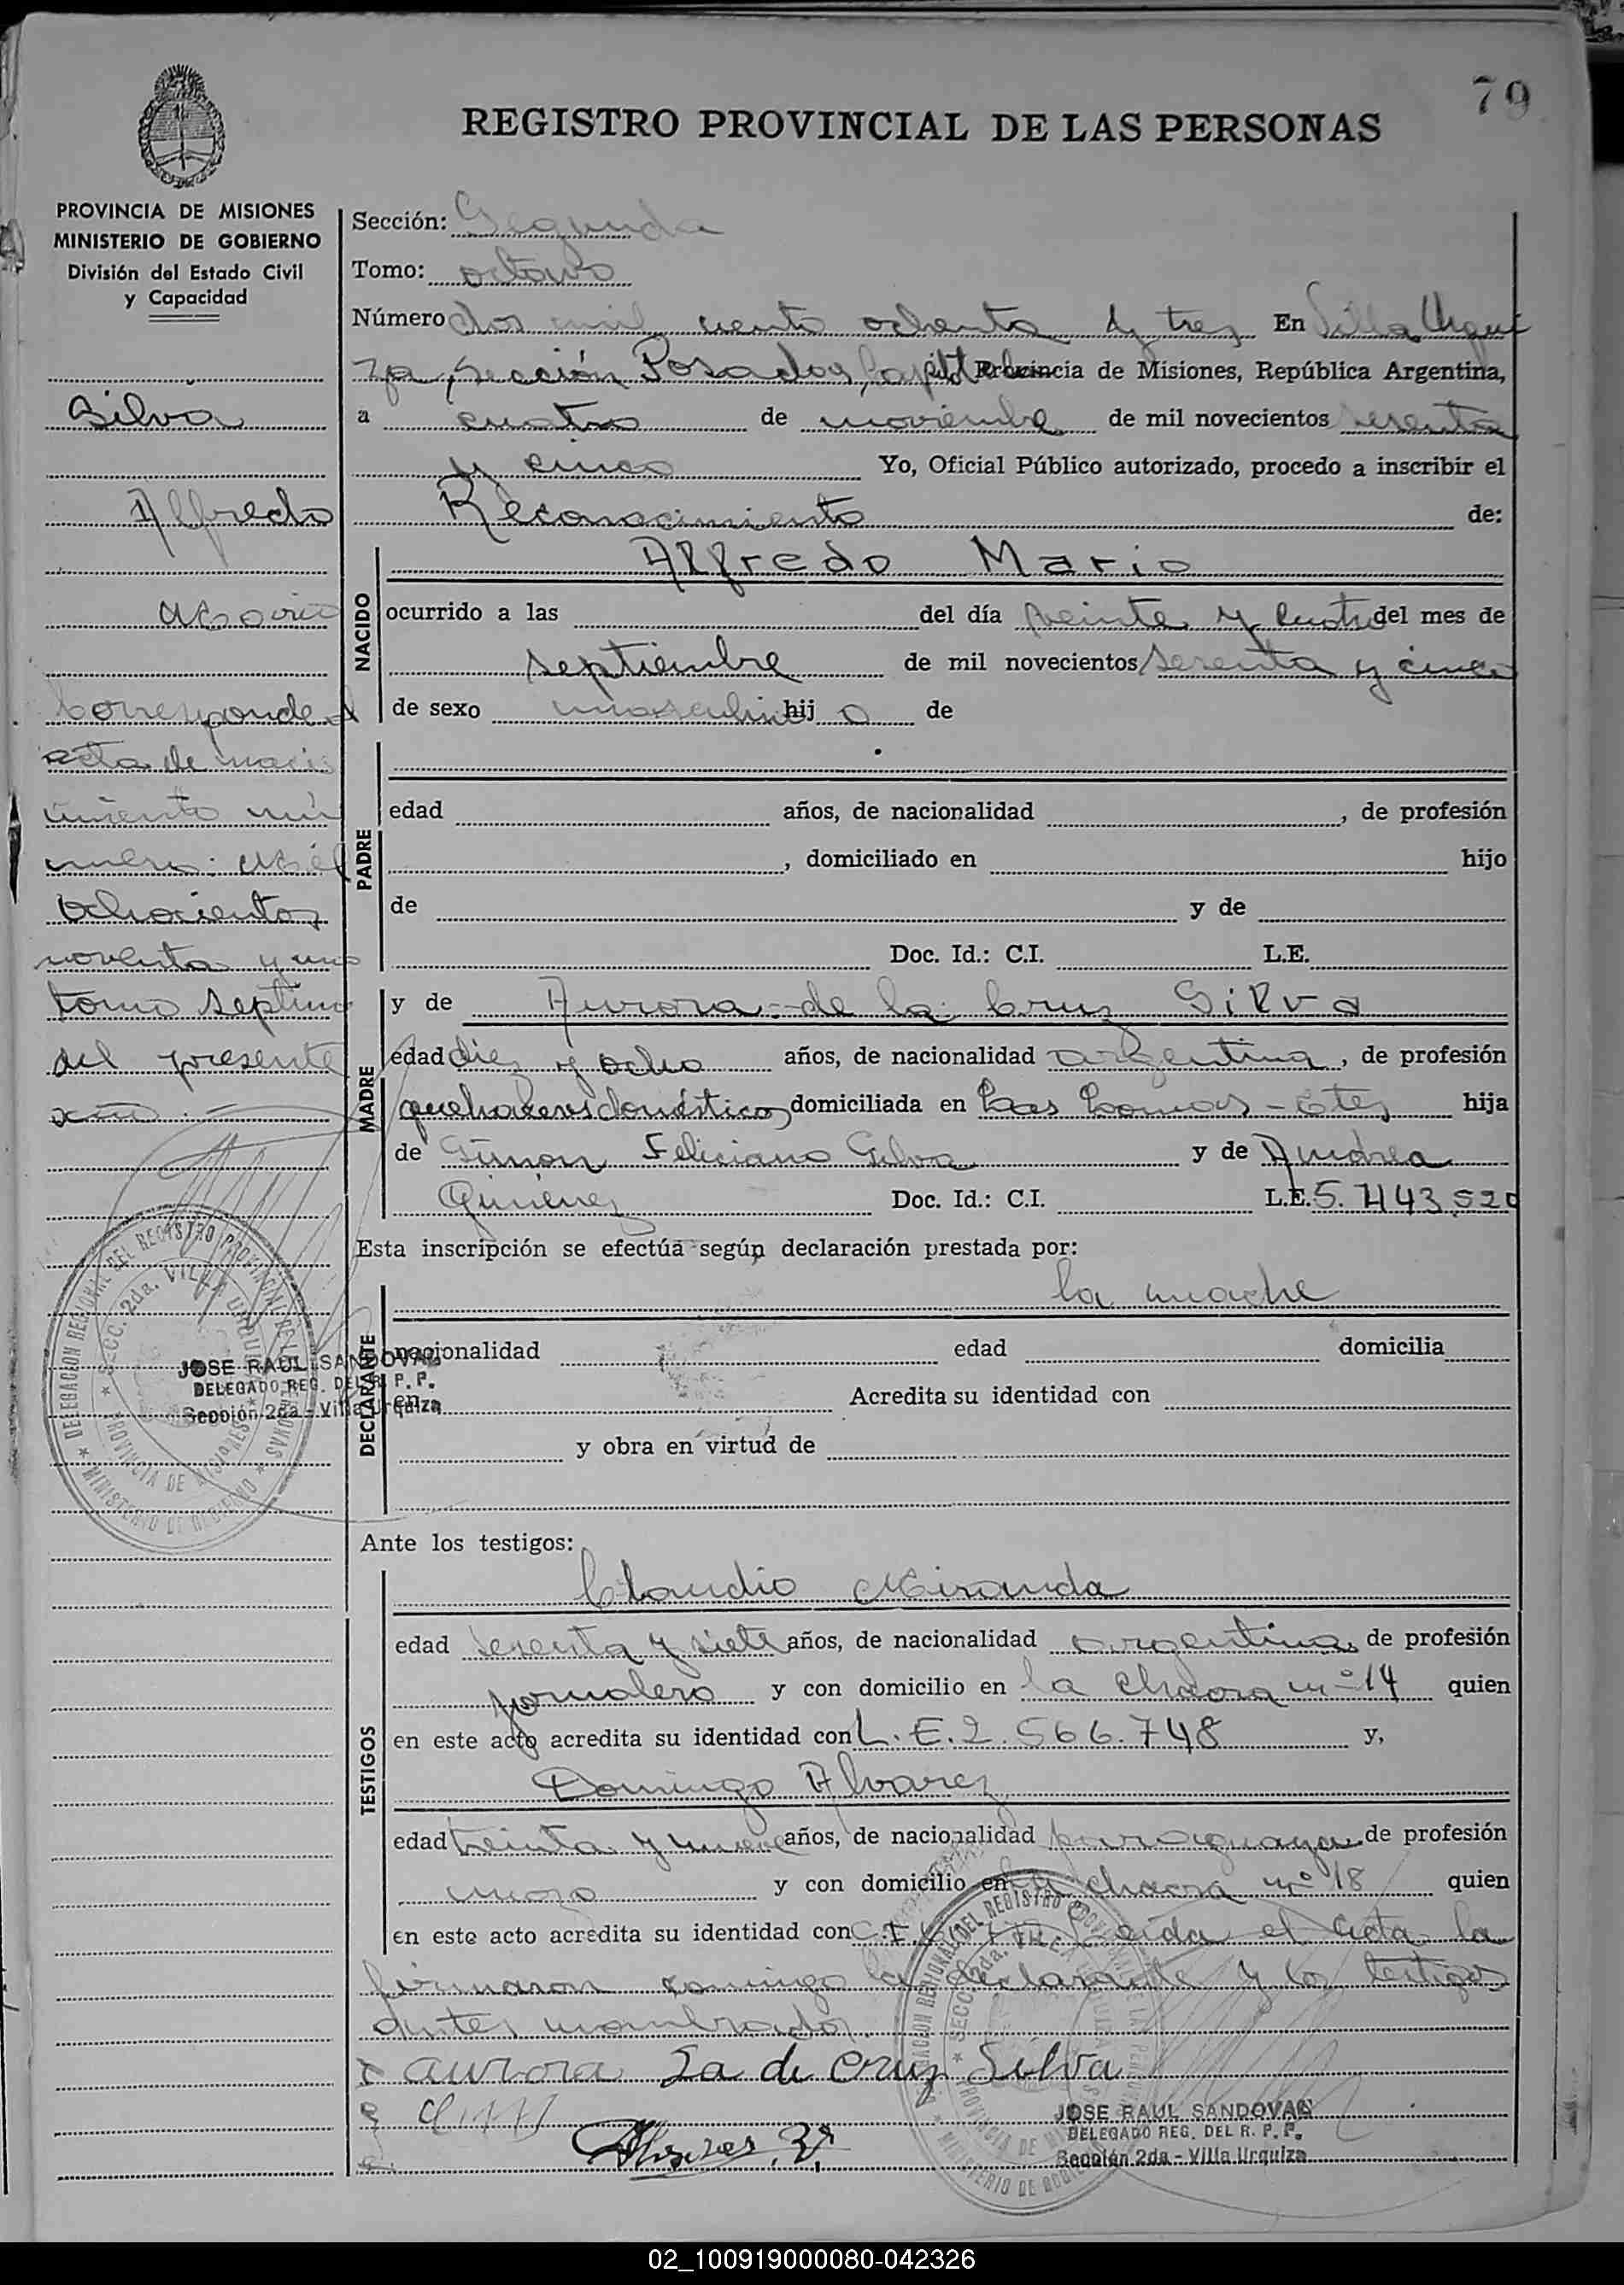 79
REGISTRO PROVINCIAL DE LAS PERSONAS
PROVINCIA DE MISIONES
MINISTERIO DE GOBIERNO
División del Estado Civil
y Capacidad
Silva
Alfredo
Mario
Corresponde al
acta de naci
miento nú
mero: Mil
Ochocientos
noventa y uno
tomo septimo
del presente
año.-
Sección: Segunda
Tomo: octavo
Número dos mil ciento ochenta y tres En Villa Urqui
za, sección Posadas, Capital Provincia de Misiones, República Argentina,
a cuatro de noviembre de mil novecientos sesenta
y cinco Yo, Oficial Público autorizado, procedo a inscribir el
Reconocimiento de:
NACIDO
Alfredo Mario
ocurrido a las del día veinte y cuatro del mes de
septiembre de mil novecientos sesenta y cinco
de sexo masculino hijo de
PADRE
edad años, de nacionalidad , de profesión
, domiciliado en hijo
de y de
Doc. Id.: C.I. L.E.
MADRE
y de Aurora de la Cruz Silva
edad diez y ocho años, de nacionalidad argentina, de profesión
quehaceres domésticos domiciliada en Las Lomas - Ctes hija
de Simon Feliciano Silva y de Andrea
Giménez Doc. Id.: C.I. L.E. 5.443.520
Esta inscripción se efectúa según declaración prestada por:
DECLARANTE
la madre
nacionalidad edad domicilia
en Acredita su identidad con
y obra en virtud de
DELEGACION REGIONAL DEL REGISTRO PROVINCIAL DE LAS PERSONAS
SECC. 2da. VILLA URQUIZA
PROVINCIA DE MISIONES
MINISTERIO DE GOBIERNO
JOSE RAUL SANDOVAL
DELEGADO REG. DEL R. P. P.
Sección 2da - Villa Urquiza
Ante los testigos:
TESTIGOS
Claudio Miranda
edad sesenta y siete años, de nacionalidad argentina, de profesión
jornalero y con domicilio en la chacra nº 14 quien
en este acto acredita su identidad con L.E. 2.566.748 y,
Domingo Alvarez
edad treinta y nueve años, de nacionalidad paraguaya de profesión
mozo y con domicilio en la chacra nº 18 quien
en este acto acredita su identidad con C.I. Leida el acta la
firmaron conmigo la declarante y los testigos
antes nombrados.
aurora La de Cruz Silva
DELEGACION REGIONAL DEL REGISTRO PROVINCIAL DE LAS PERSONAS
SECC. 2da. VILLA URQUIZA
PROVINCIA DE MISIONES
MINISTERIO DE GOBIERNO
JOSE RAUL SANDOVAL
DELEGADO REG. DEL R. P. P.
Sección 2da - Villa Urquiza
02_100919000080-042326